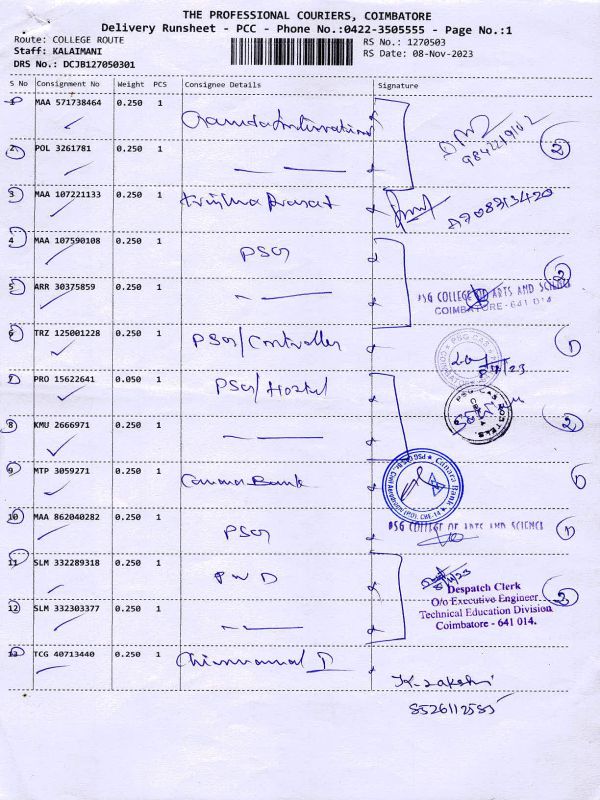 THE PROFESSIONAL COURIERS, COIMBATORE
Delivery Runsheet - PCC - Phone No.:0422-3505555 - Page No.:1
Route: COLLEGE ROUTE
RS No.: 1270503
Staff: KALAIMANI
RS Date: 08-Nov-2023
DRS No.: DCJB127050301
S No Consignment No Weight PCS Consignee Details Signature
1 MAA 571738464 0.250 1
9842219102
2 POL 3261781 0.250 1 2
3 MAA 107221133 0.250 1 Krishna Prasat
8708713420
4 MAA 107590108 0.250 1 PSG
2
5 ARR 30375859 0.250 1
PSG COLLEGE OF ARTS AND SCIENCE
COIMBATORE - 641 014
6 TRZ 125001228 0.250 1 PSG/Controller 1
7 PRO 15622641 0.050 1 PSG/Hostel
PSG CAS
HOSTELS
8 KMU 2666971 0.250 1 2
9 MTP 3059271 0.250 1 Canara Bank 1
Canara Bank
10 MAA 862040282 0.250 1 PSG 1
PSG COLLEGE OF ARTS AND SCIENCE
11 SLM 332289318 0.250 1 PWD
Despatch Clerk
O/o Executive Engineer
Technical Education Division
Coimbatore - 641 014.
2
12 SLM 332303377 0.250 1
13 TCG 40713440 0.250 1
K. Sakshi
8526112585